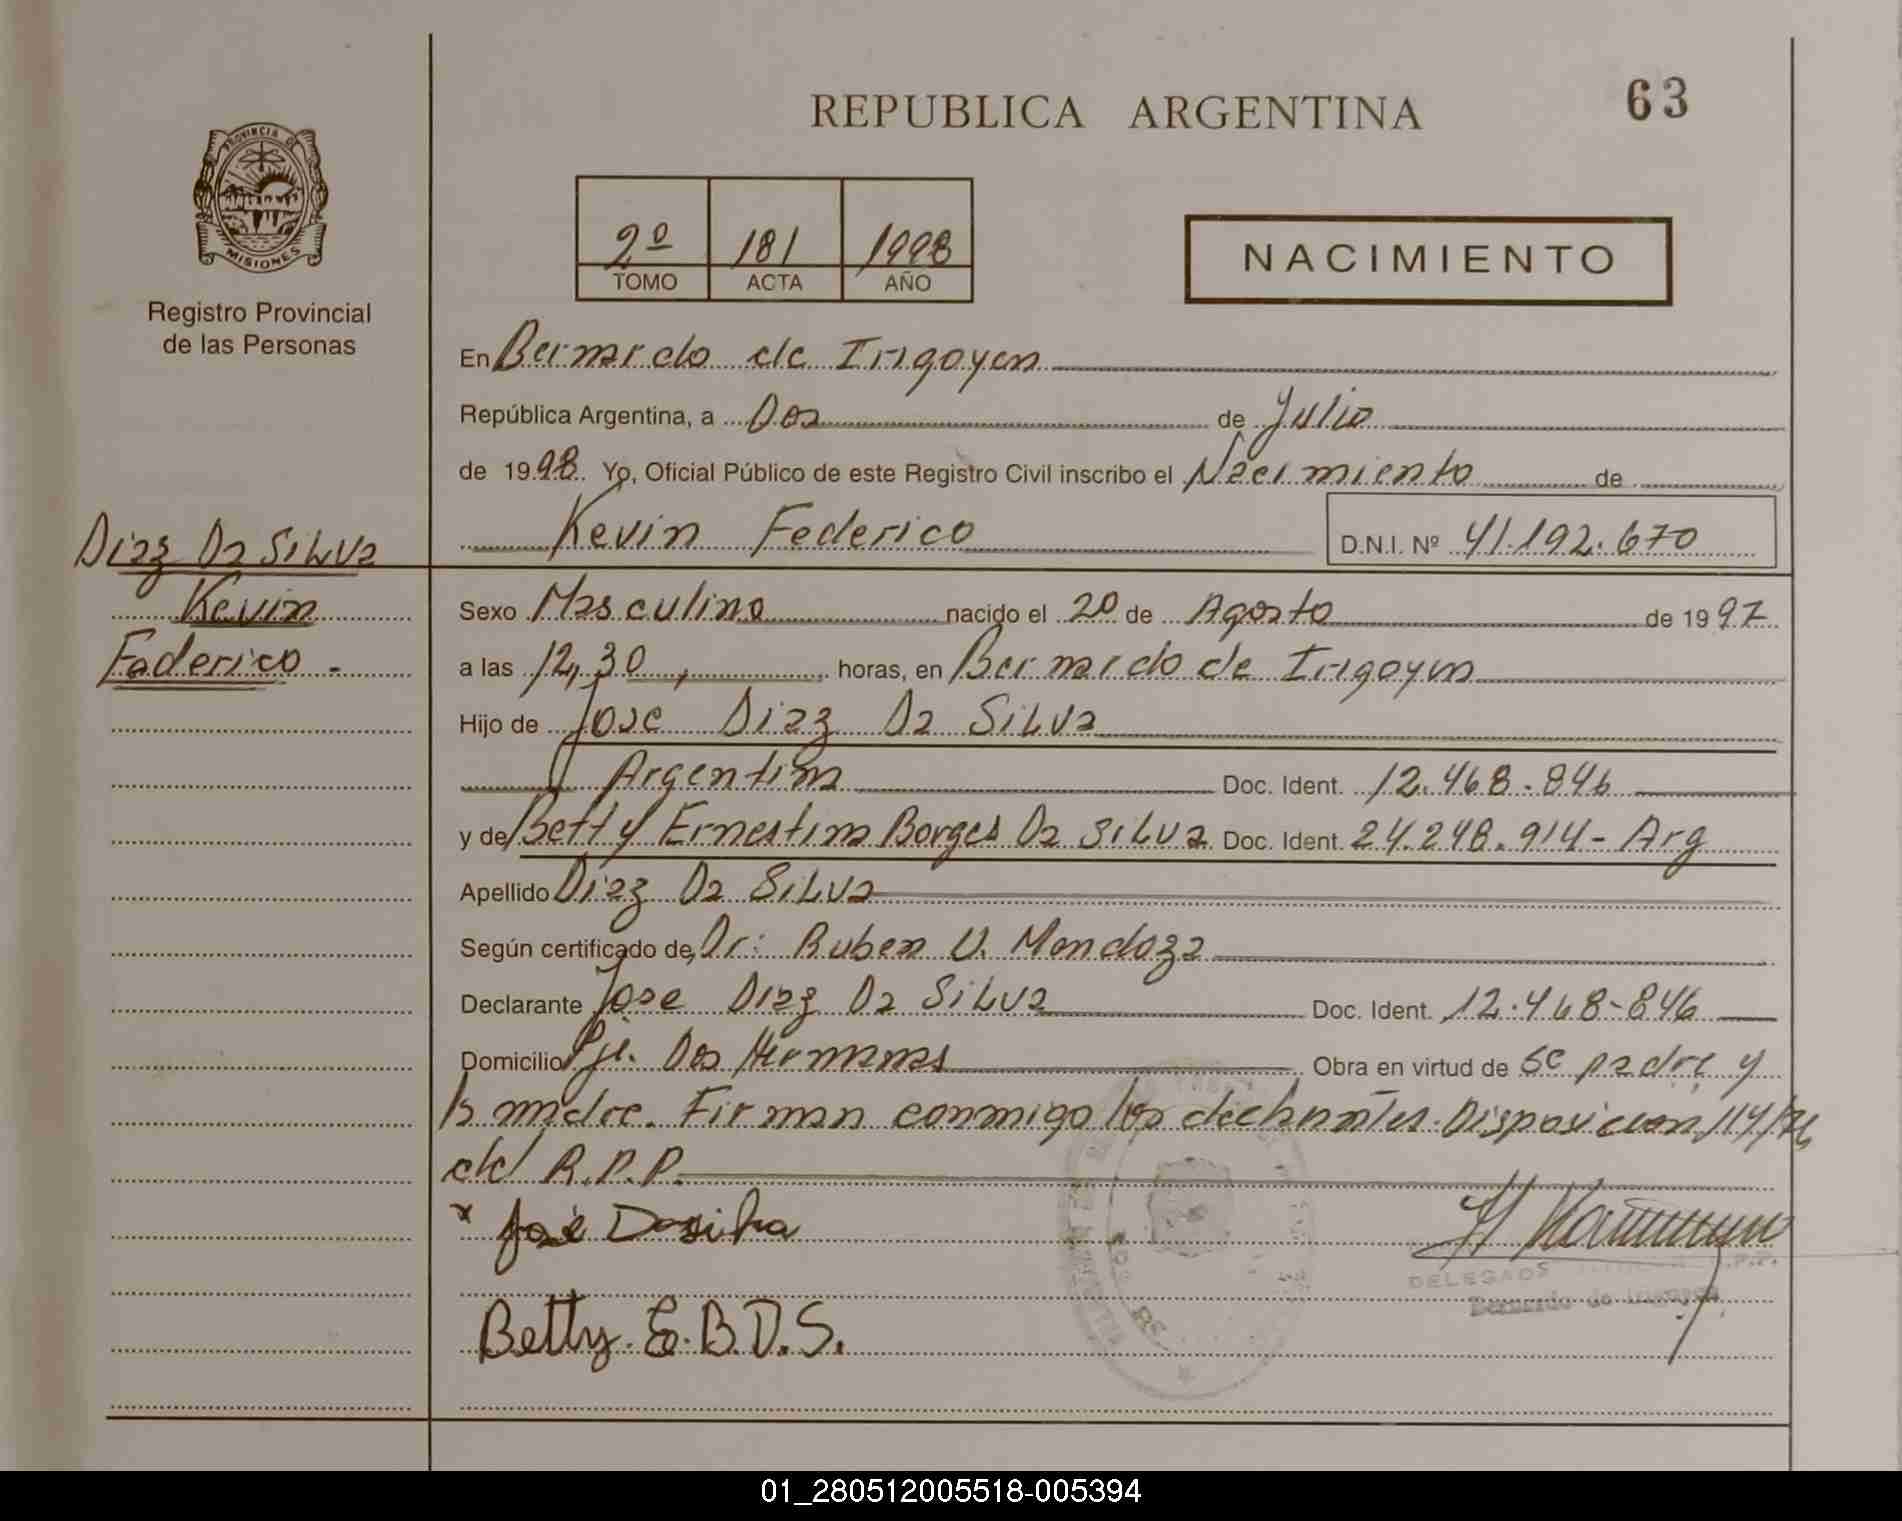 REPUBLICA ARGENTINA
63
PROVINCIA DE
MISIONES
Registro Provincial
de las Personas
2º 181 1998
TOMO ACTA AÑO
NACIMIENTO
En Bernardo de Irigoyen
República Argentina, a Dos de Julio
de 1998. Yo, Oficial Público de este Registro Civil inscribo el Nacimiento de
Kevin Federico D.N.I. Nº 41.192.670
Diaz Da Silva
Kevin
Federico -
Sexo Masculino nacido el 20 de Agosto de 1997
a las 12,30, horas, en Bernardo de Irigoyen
Hijo de Jose Diaz Da Silva
Argentina Doc. Ident. 12.468.846
y de Betty Ernestina Borges Da Silva Doc. Ident. 24.248.914- Arg
Apellido Diaz Da Silva
Según certificado de Dr: Ruben V. Mendoza
Declarante Jose Diaz Da Silva Doc. Ident. 12.468-846
Domicilio Pje. Dos Hermanas Obra en virtud de Se padre y
la madre. Firman conmigo los declarantes. Disposicion 114/
del R.P.P.
x José Dasilva
DELEGADO R.P.P.
Bernardo de Irigoyen
Betty. E.B.D.S.
01_280512005518-005394